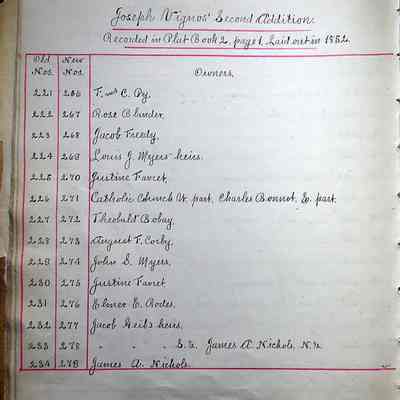 Joseph Vignos' Second Addition.
Recorded in Plat Book 2, page 1. Laid out in 1852.
Old Nos. New Nos. Owners.
221 266 F. and C. Py.
222 267 Rose Blinder.
223 268 Jacob Freedy.
224 269 Louis J. Myers' heirs.
225 270 Justine Favret.
226 271 Catholic Church W. part, Charles Bonnot, E. part.
227 272 Theobald Bobay.
228 273 August F. Corby.
229 274 John S. Myers.
230 275 Justine Favret
231 276 Elmer E. Rodes.
232 277 Jacob Heil's heirs.
233 278 " " " S. ½ James A. Nichols, N. ½
234 279 James A. Nichols.